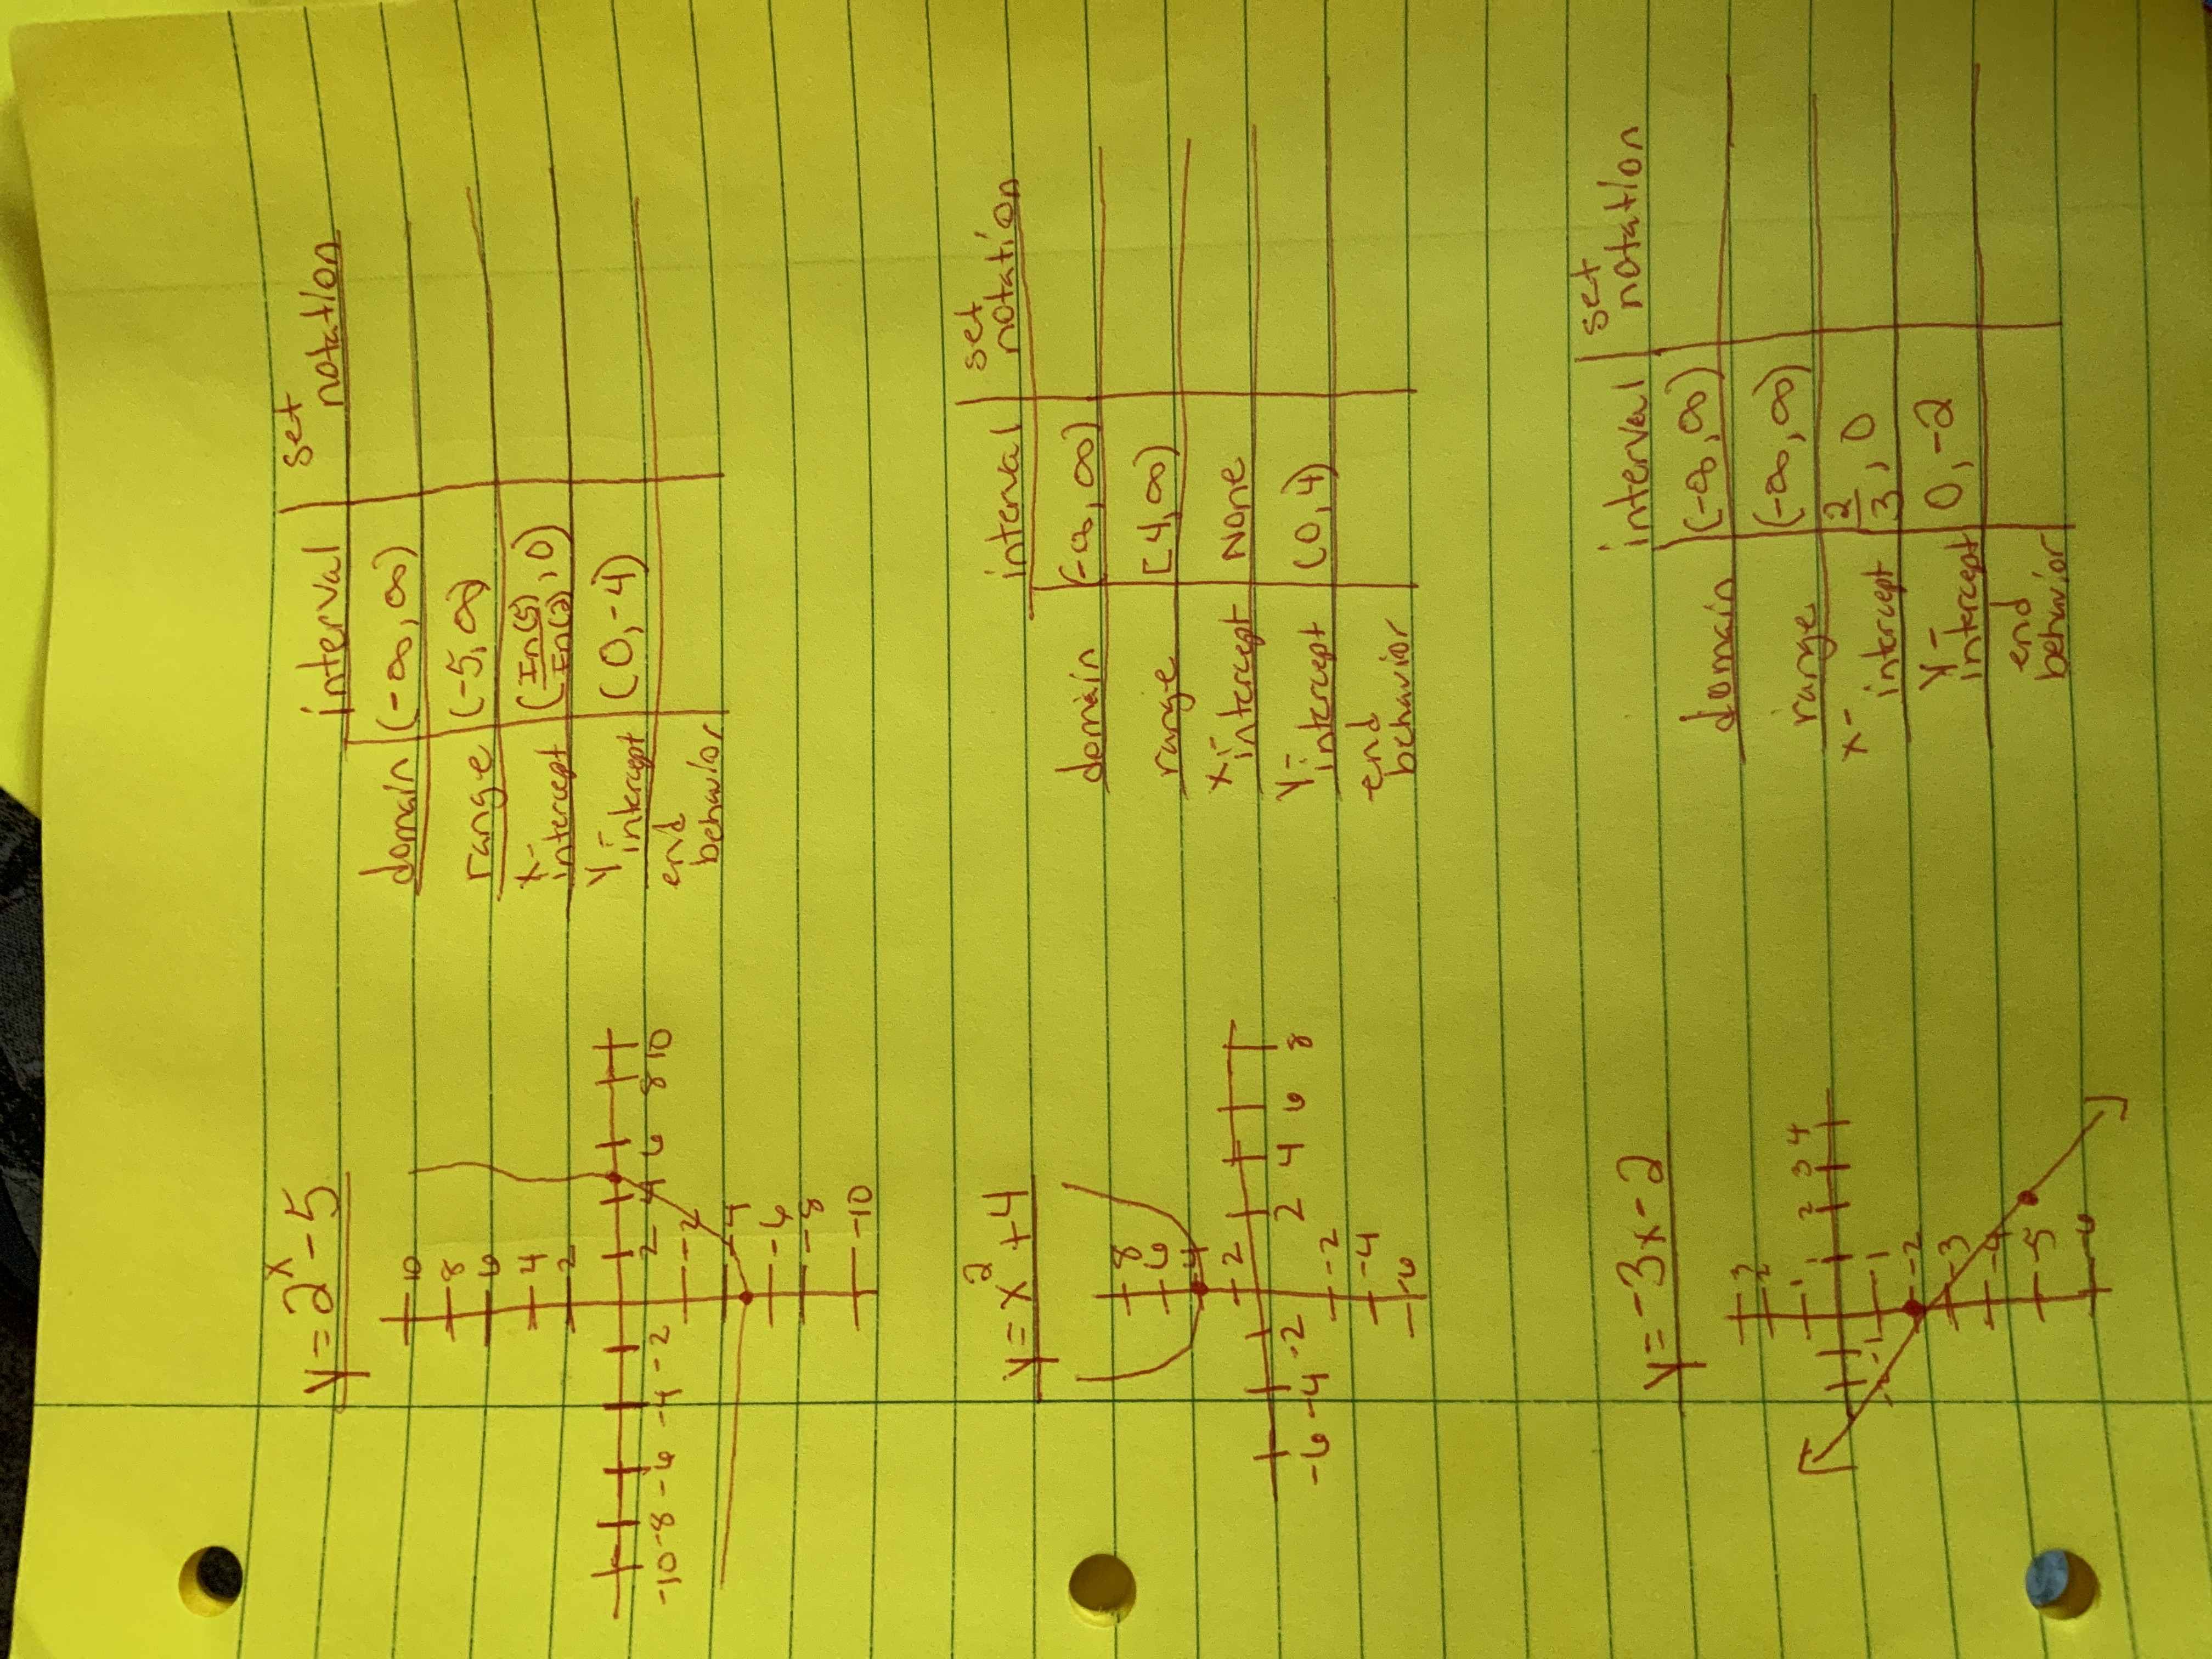 y = 2^x - 5
interval | set notation
domain | (-∞, ∞)
range | (-5, ∞)
x-intercept | (In(5)/In(2), 0)
y-intercept | (0, -4)
end behavior
10
8
6
4
2
-10 -8 -6 -4 -2 2 4 6 8 10
-2
-4
-6
-8
-10
y = x^2 + 4
interval | set notation
domain | (-∞, ∞)
range | [4, ∞)
x-intercept | None
y-intercept | (0, 4)
end behavior
8
6
4
2
-6 -4 -2 2 4 6 8
-2
-4
-6
y = -3x - 2
interval | set notation
domain | (-∞, ∞)
range | (-∞, ∞)
x-intercept | 2/3, 0
y-intercept | 0, -2
end behavior
3
2
1
-1 1 2 3 4
-1
-2
-3
-4
-5